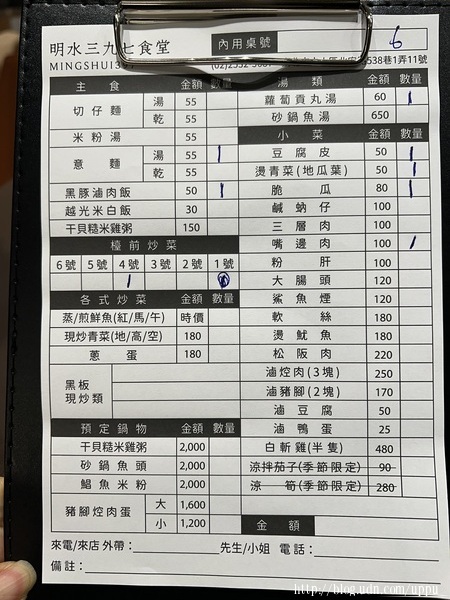 明水三九七食堂
MINGSHUI3
內用桌號
6
538巷1弄11號
主食 金額 數量
切仔麵 湯 55
乾 55
米粉湯 55
意麵 湯 55 1
乾 55
黑豚滷肉飯 50 1
越光米白飯 30
干貝糙米雞粥 150
檯前炒菜
6號 5號 4號 3號 2號 1號
1
各式炒菜 金額 數量
蒸/煎鮮魚(紅/馬/午) 時價
現炒青菜(地/高/空) 180
蔥蛋 180
黑板
現炒類
預定鍋物 金額 數量
干貝糙米雞粥 2,000
砂鍋魚頭 2,000
鯧魚米粉 2,000
豬腳焢肉蛋 大 1,600
小 1,200
湯類 金額 數量
蘿蔔貢丸湯 60 1
砂鍋魚湯 650
小菜 金額 數量
豆腐皮 50 1
燙青菜(地瓜葉) 50 1
脆瓜 80 1
鹹蚋仔 100
三層肉 100
嘴邊肉 100 1
粉肝 100
大腸頭 120
鯊魚煙 120
軟絲 180
燙魷魚 180
松阪肉 220
滷焢肉(3塊) 250
滷豬腳(2塊) 170
滷豆腐 50
滷鴨蛋 25
白斬雞(半隻) 480
涼拌茄子(季節限定) 90
涼筍(季節限定) 280
金額
來電/來店 外帶：先生/小姐 電話：
備註：
http://blog.udn.com/uppu